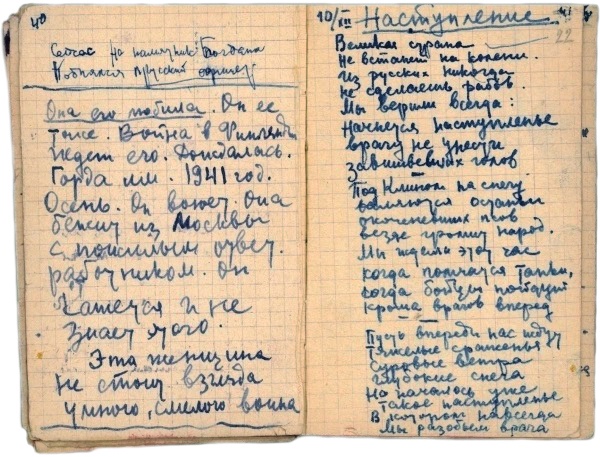 40
Сейчас на памятник Богдана
Поднялся прусский офицер
Она его любила. Он ее
тоже. Война в Финляндии
ждет его. Дождалась.
Горда им. 1941 год.
Осень. Он воюет. Она
бежит из Москвы
с пошилым ответ.
работником. Он
катется и не
знает этого.
Эта женщина
не стоит взгляда
умного, смелого воина
10/XII Наступление 41
22
Великая страна
Не встанет на колени.
Из русских никогда
не сделаешь рабов.
Мы верили всегда:
Начнется наступленье
врагу не унести
завшивевших голов
Под Клином на снегу
валяются останки
окоченевших псов
везде громит народ.
Мы ждали этот час
когда помчатся танки,
когда бойцы пойдут
кроша врагов вперед
Пусть впереди нас ждут
тяжелые сраженья
суровые ветра
глубокие снега
Но началось уже
такое наступленье
В котором навсегда
Мы разобьем врага